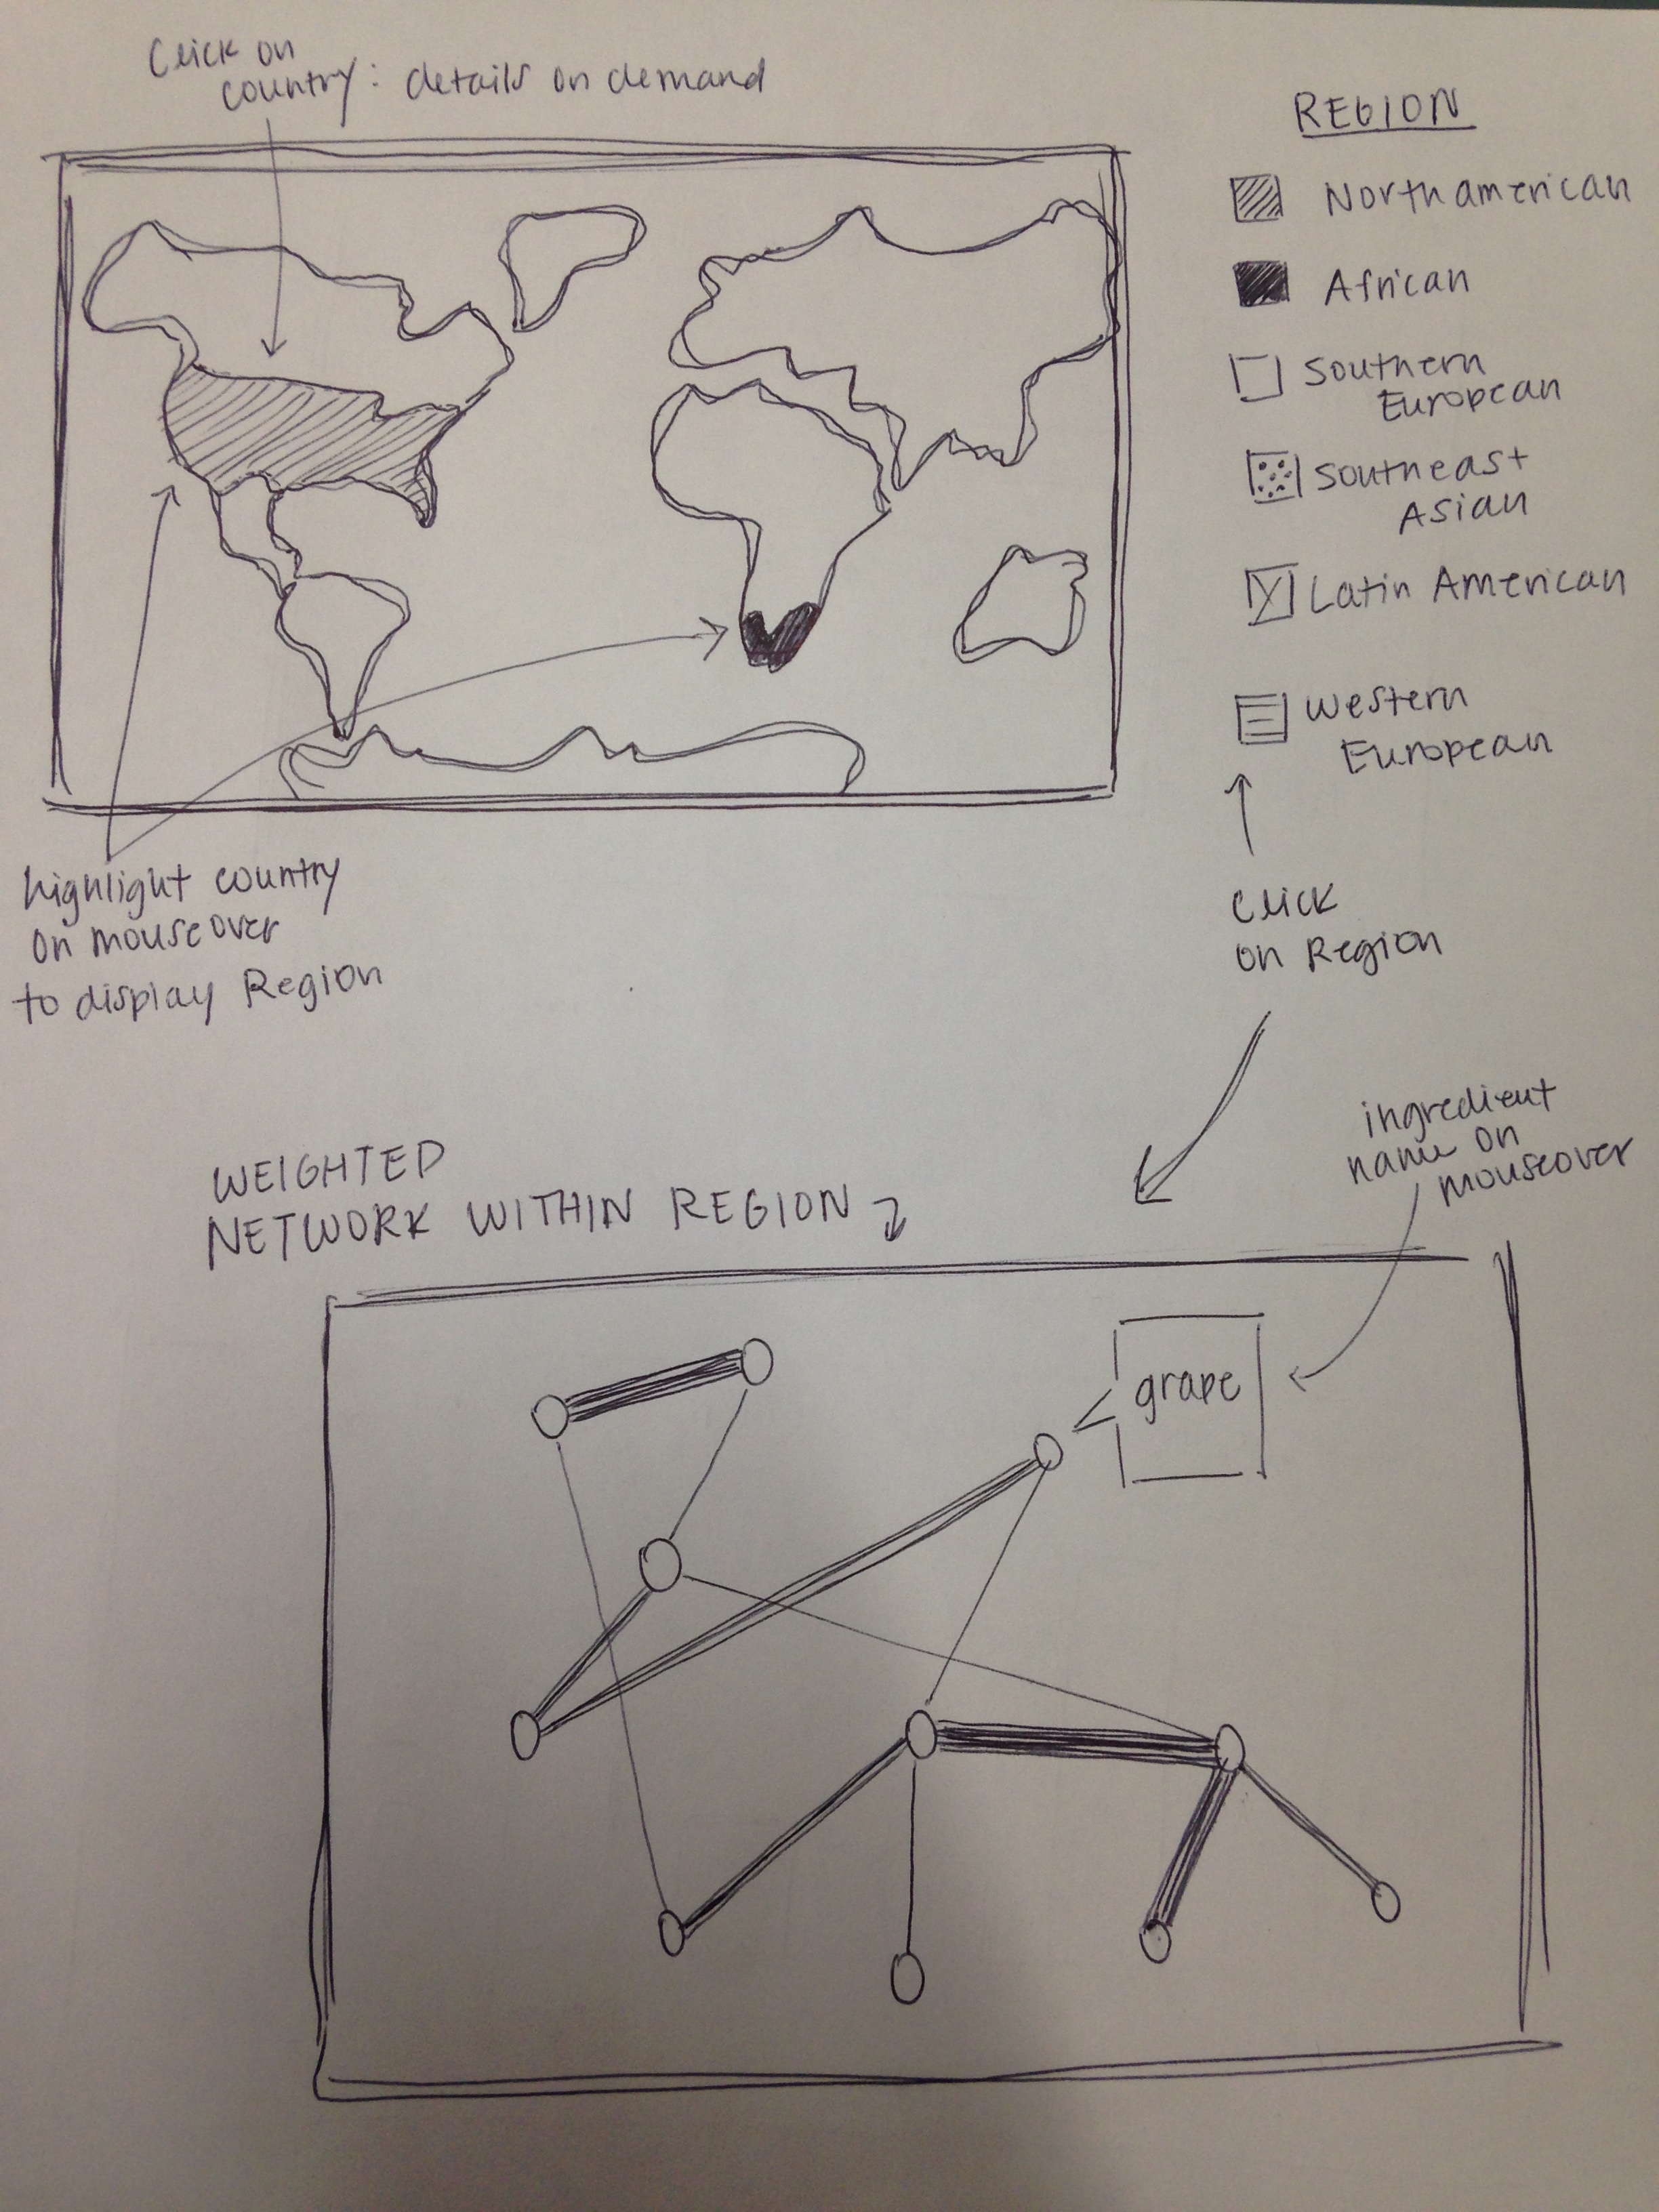 Click on
country: details on demand
REGION
Northamerican
African
Southern
European
Southeast
Asian
Latin American
Western
European
highlight country
on mouseover
to display Region
Click
on Region
ingredient
name on
mouseover
WEIGHTED
NETWORK WITHIN REGION
grape